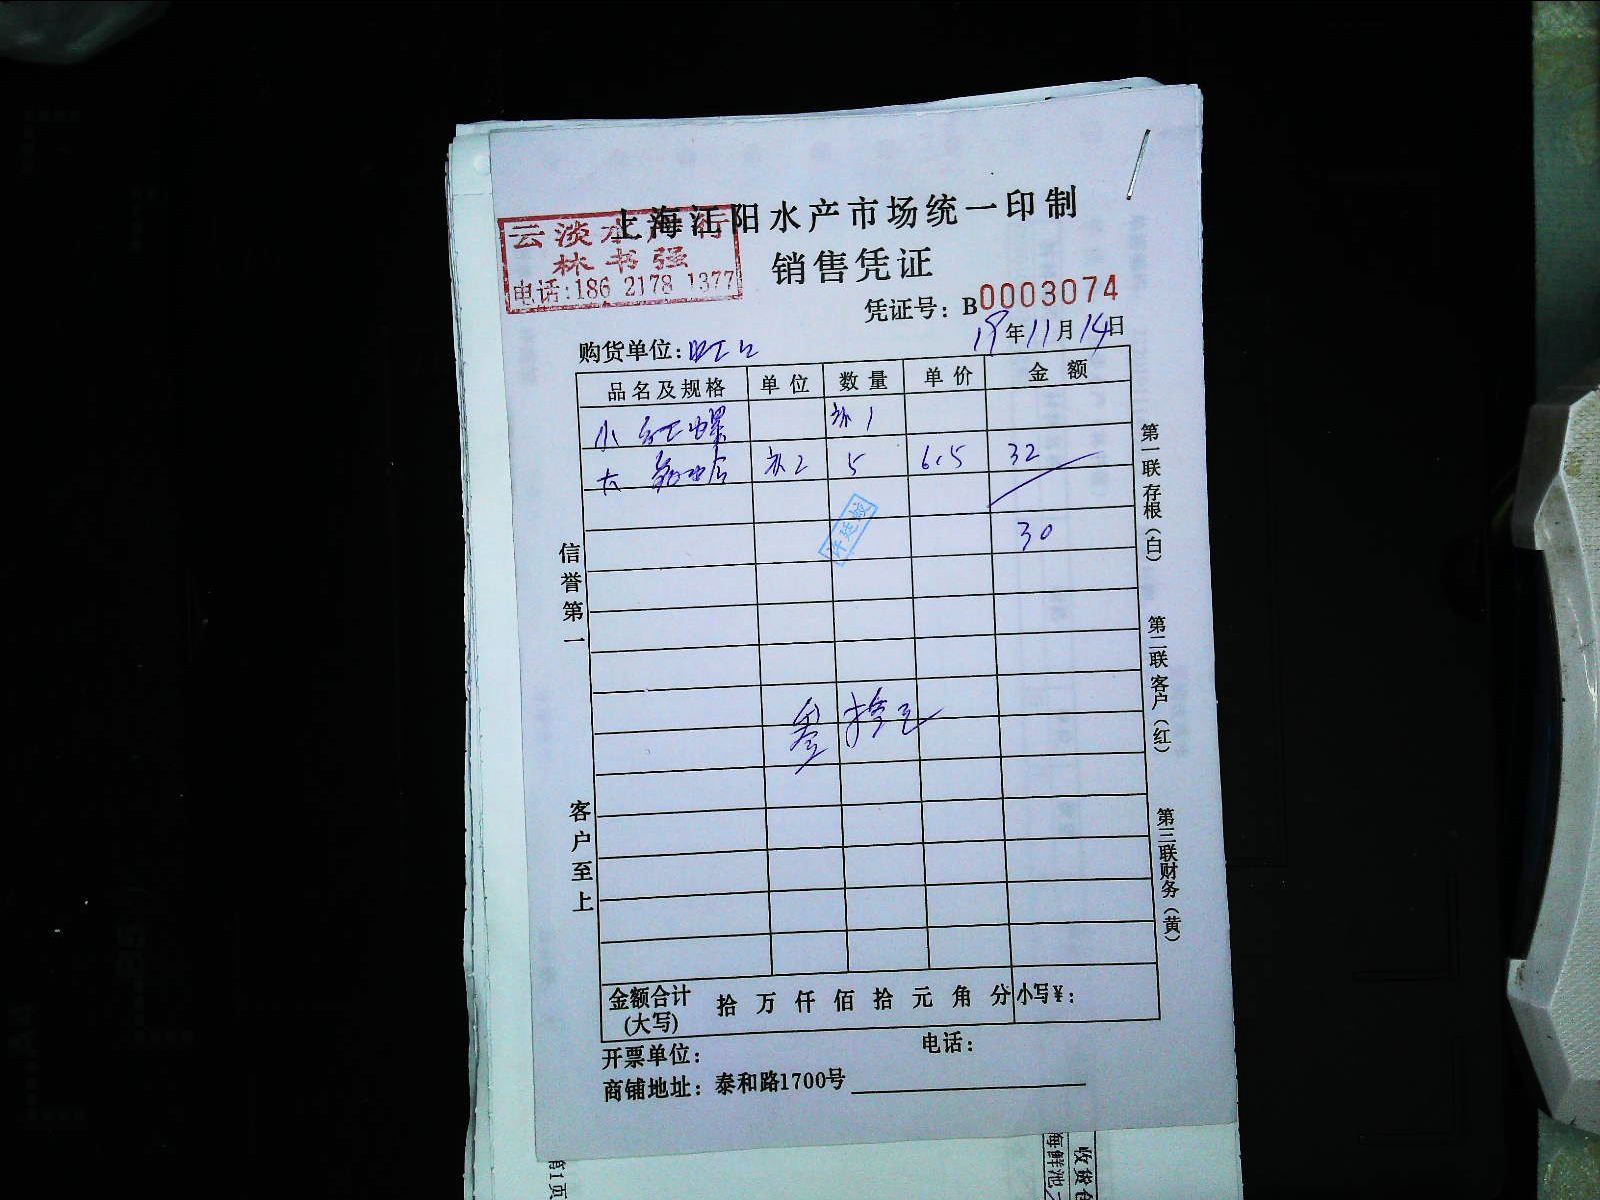 上海江阳水产市场统一印制
云淡水产行
林书强
电话:186 2178 1377
销售凭证
凭证号：B0003074
19年11月14日
购货单位:旺口
品名及规格 单位 数量 单价 金额
小红螺 补1
大 补2 5 6.5 32
30
叁拾元
信誉第一
客户至上
第一联存根（白）
第二联客户（红）
第三联财务（黄）
金额合计(大写) 拾万仟佰拾元角分 小写￥：
开票单位： 电话：
商铺地址：泰和路1700号
第1页
海鲜池
收货